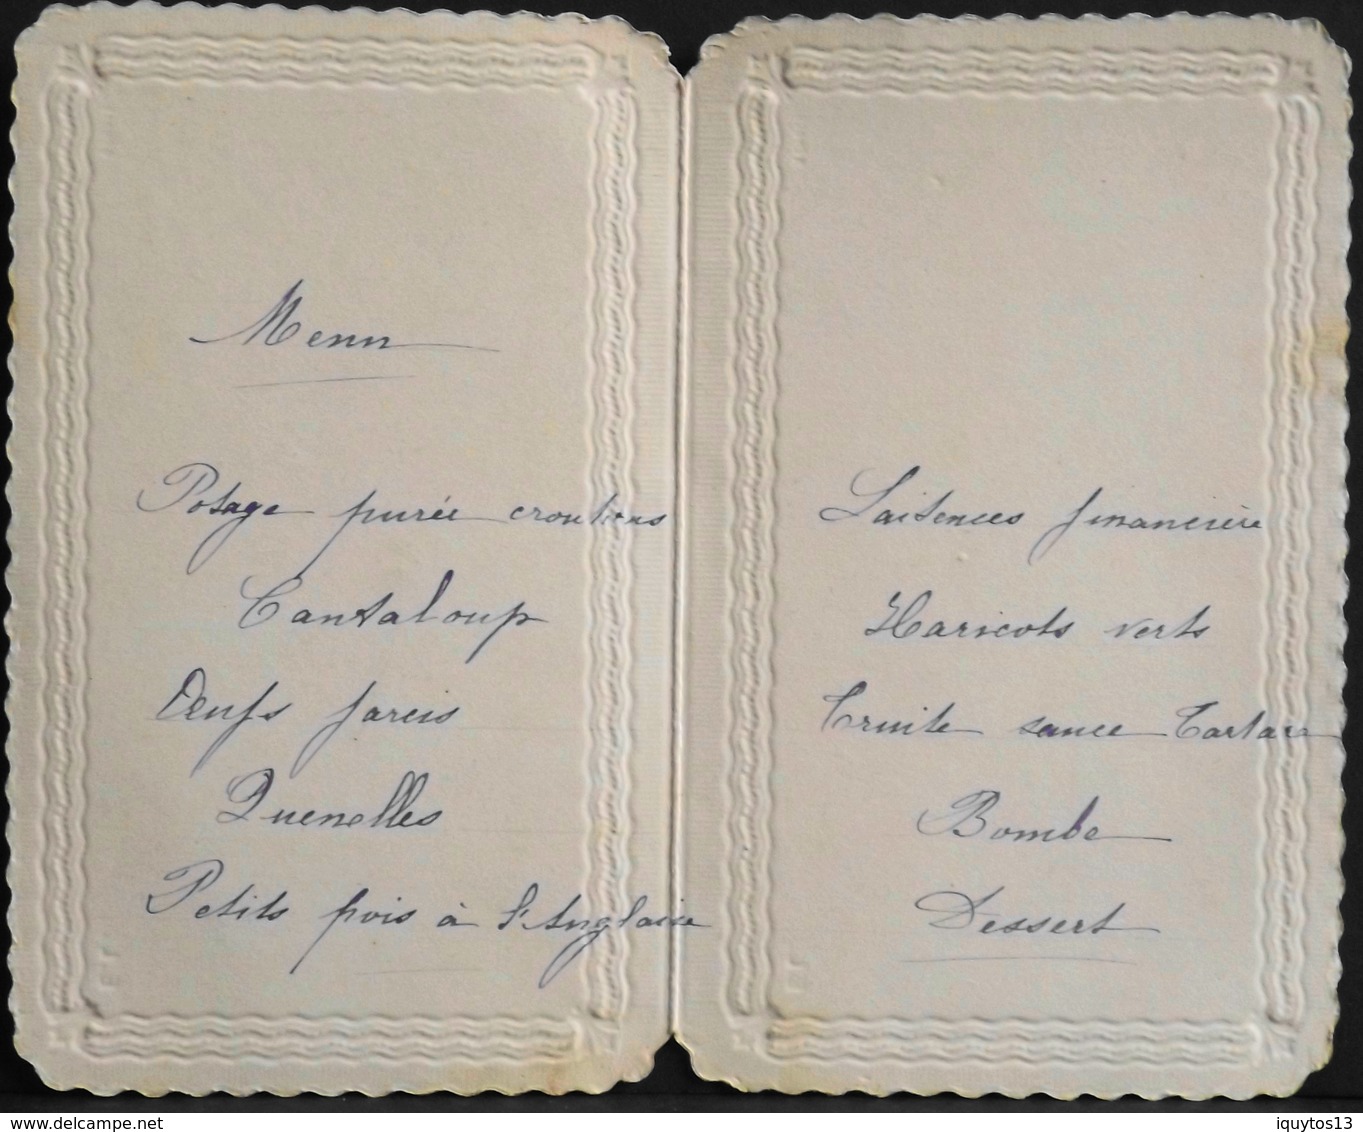 Menu
Potage purée croutons
Cantaloup
Œufs farcis
Quenelles
Petits pois à l'Anglaise
Laitences financière
Haricots verts
Truite sauce Tartare
Bombe
Dessert
www.delcampe.net
iquytos13